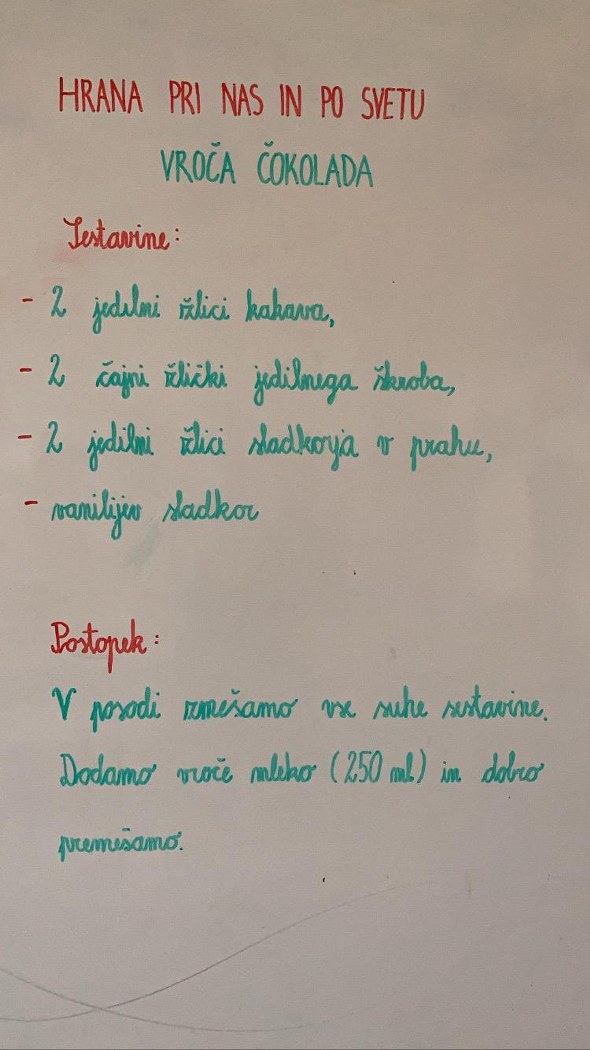 HRANA PRI NAS IN PO SVETU
VROČA ČOKOLADA
Sestavine:
- 2 jedilni žlici kakava,
- 2 čajni žlički jedilnega škroba,
- 2 jedilni žlici sladkorja v prahu,
- vanilijev sladkor
Postopek:
V posodi zmešamo vse suhe sestavine.
Dodamo vroče mleko (250 ml) in dobro
premešamo.